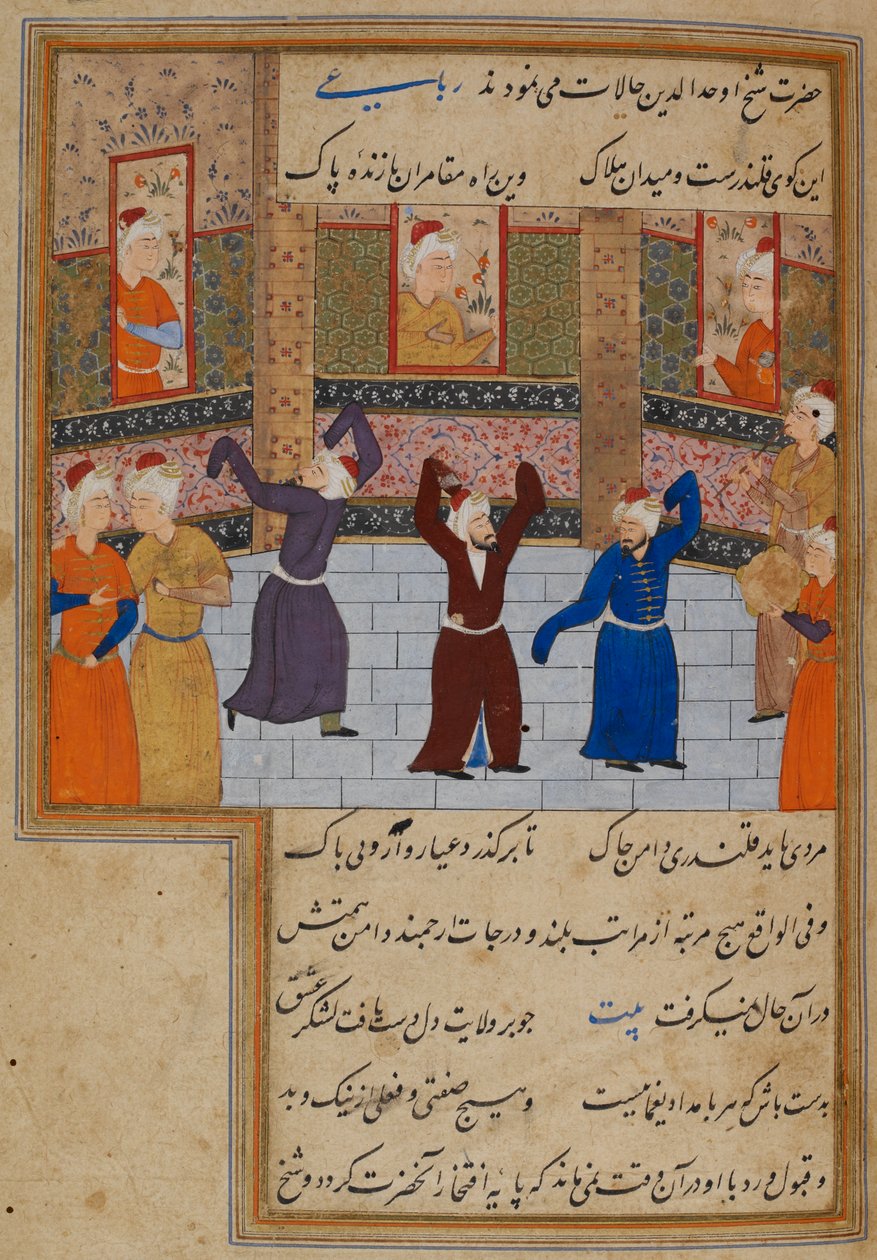 حضرت شیخ اوحدالدین حالات می نمودند رباعی
این کوی قلندرست و میدان هلاک وین راه مقامران بازنده پاک
مردی باید قلندری دامن چاک تا برگذرد عیاروار و بی باک
و فی الواقع هیچ مرتبه از مراتب بلند و درجات ارجمند دامن همتش
در آن حال نمیگرفت بیت چو بر ولایت دل دست یافت لشکر عشق
بدست باش که هر بامداد یغماییست و هیچ صفتی و فعلی از نیک و بد
و قبول و رد با او در آن وقت نمی ماند که پایه افتخار آنحضرت کردد و شیخ